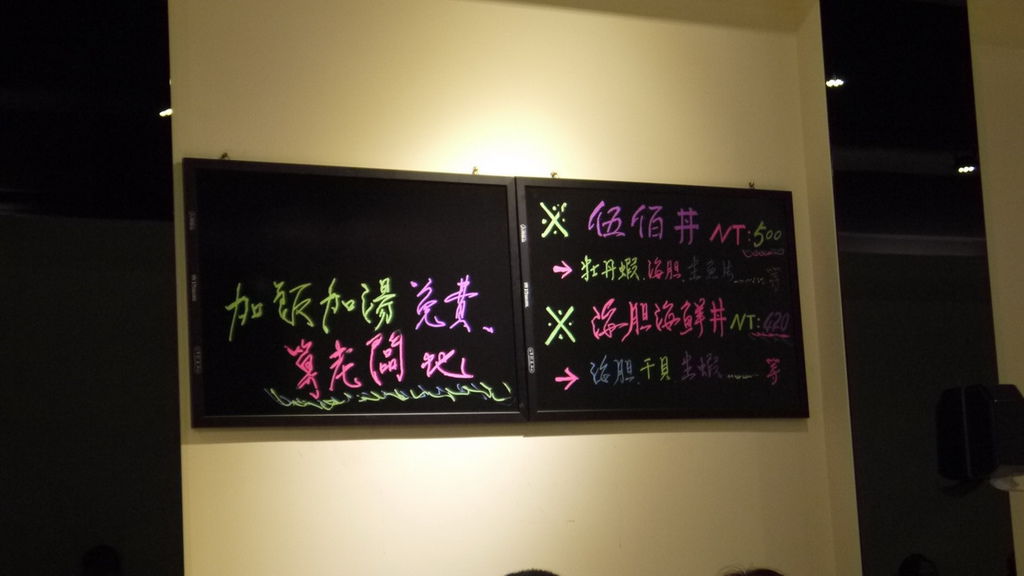 加飯加湯免費、
算老闆ㄉ
※ 伍佰丼 NT:500
→ 牡丹蝦.海胆.生魚片......等
※ 海胆海鮮丼 NT:420
→ 海胆.干貝.生蝦......等